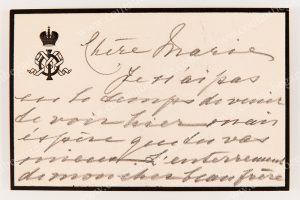 Chère Marie
Je n'ai pas
eu le temps de venir
te voir hier mais
espère que tu vas
mieux. L'enterrement
de mon cher beau frère